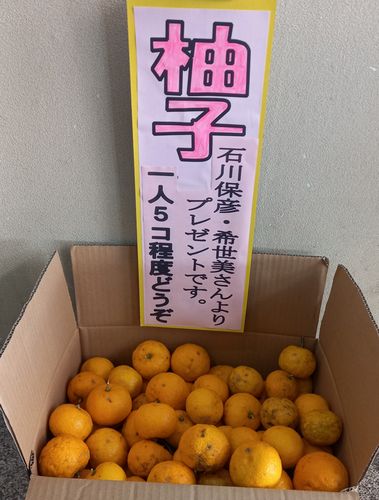 柚子
石川保彦・希世美さんより
プレゼントです。
一人5コ程度どうぞ